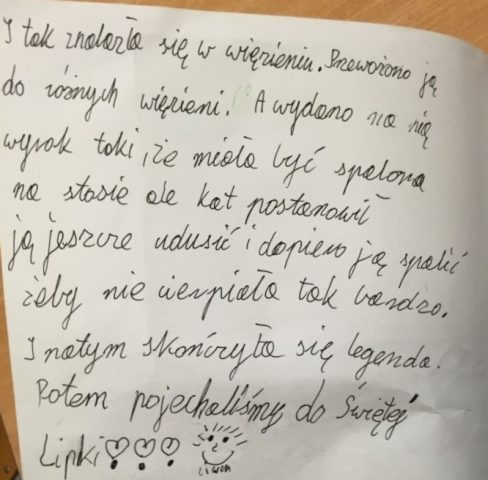 I tak znalazła się w więzieniu. Przewożono ją
do różnych więzieni. A wydano na nią
wyrok taki, że miała być spalona
na stosie ale kat postanowił
ją jeszcze udusić i dopiero ją spalić
żeby nie cierpiała tak bardzo.
I natym skończyła się legenda.
Potem pojechaliśmy do Świętej
Lipki